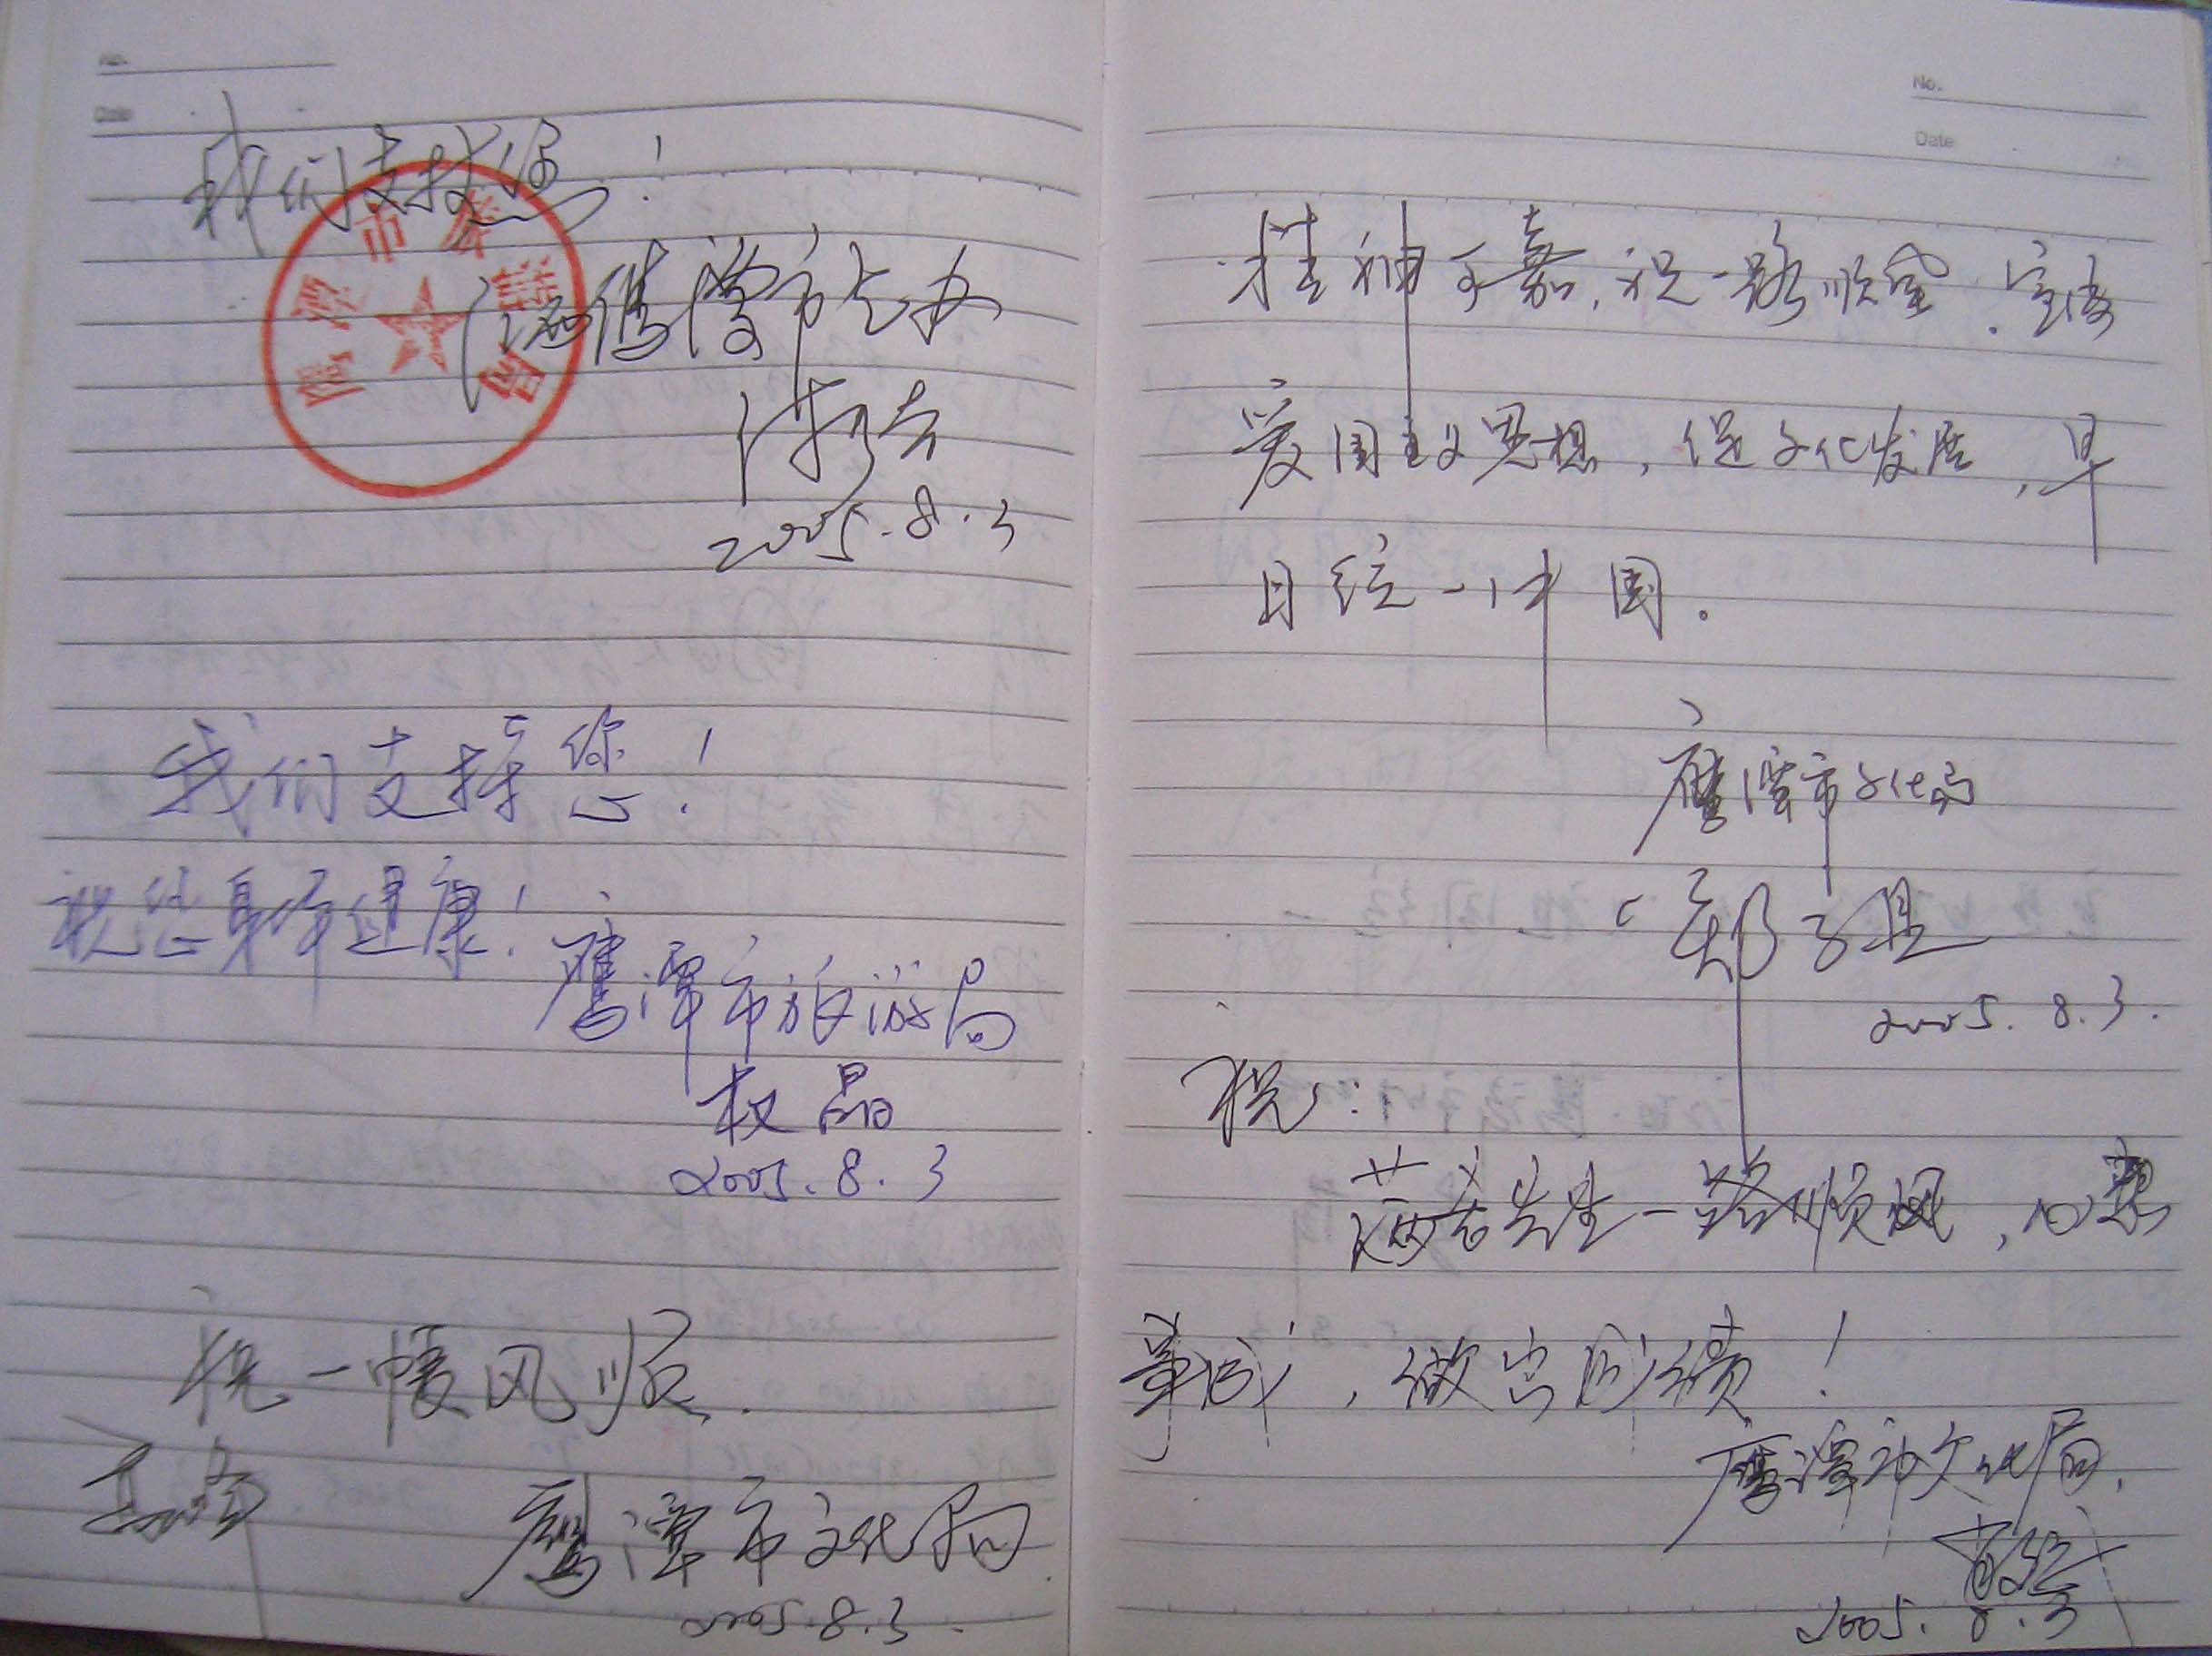 No.
Date
我们支持您!
2005.8.3
我们支持您!
祝您身体健康!
鹰潭市旅游局
权晶
2005.8.3
祝一帆风顺.
鹰潭市文化局
2005.8.3.
No.
Date
精神可嘉,祝一路顺风.宣传
爱国主义思想,促文化发展,早
日统一中国.
鹰潭市文化局
2005.8.3.
祝:
先生一路顺风,心想
事成,做出成绩!
鹰潭市文化局.
2005.8.3